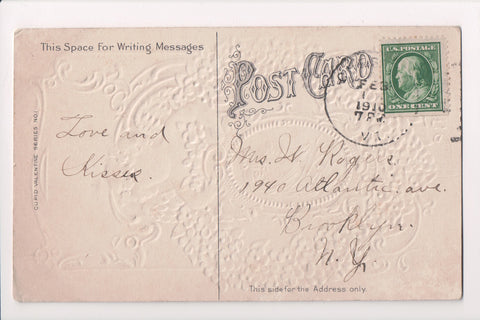 This Space For Writing Messages
POST CARD
U.S. POSTAGE
ONE CENT
FEB
1910
VA.
CUPID VALENTINE SERIES NO.
Love and
Kisses.
Mrs. W. Rogers.
1940 Atlantic ave.
Brooklyn.
N. Y.
This side for the Address only.